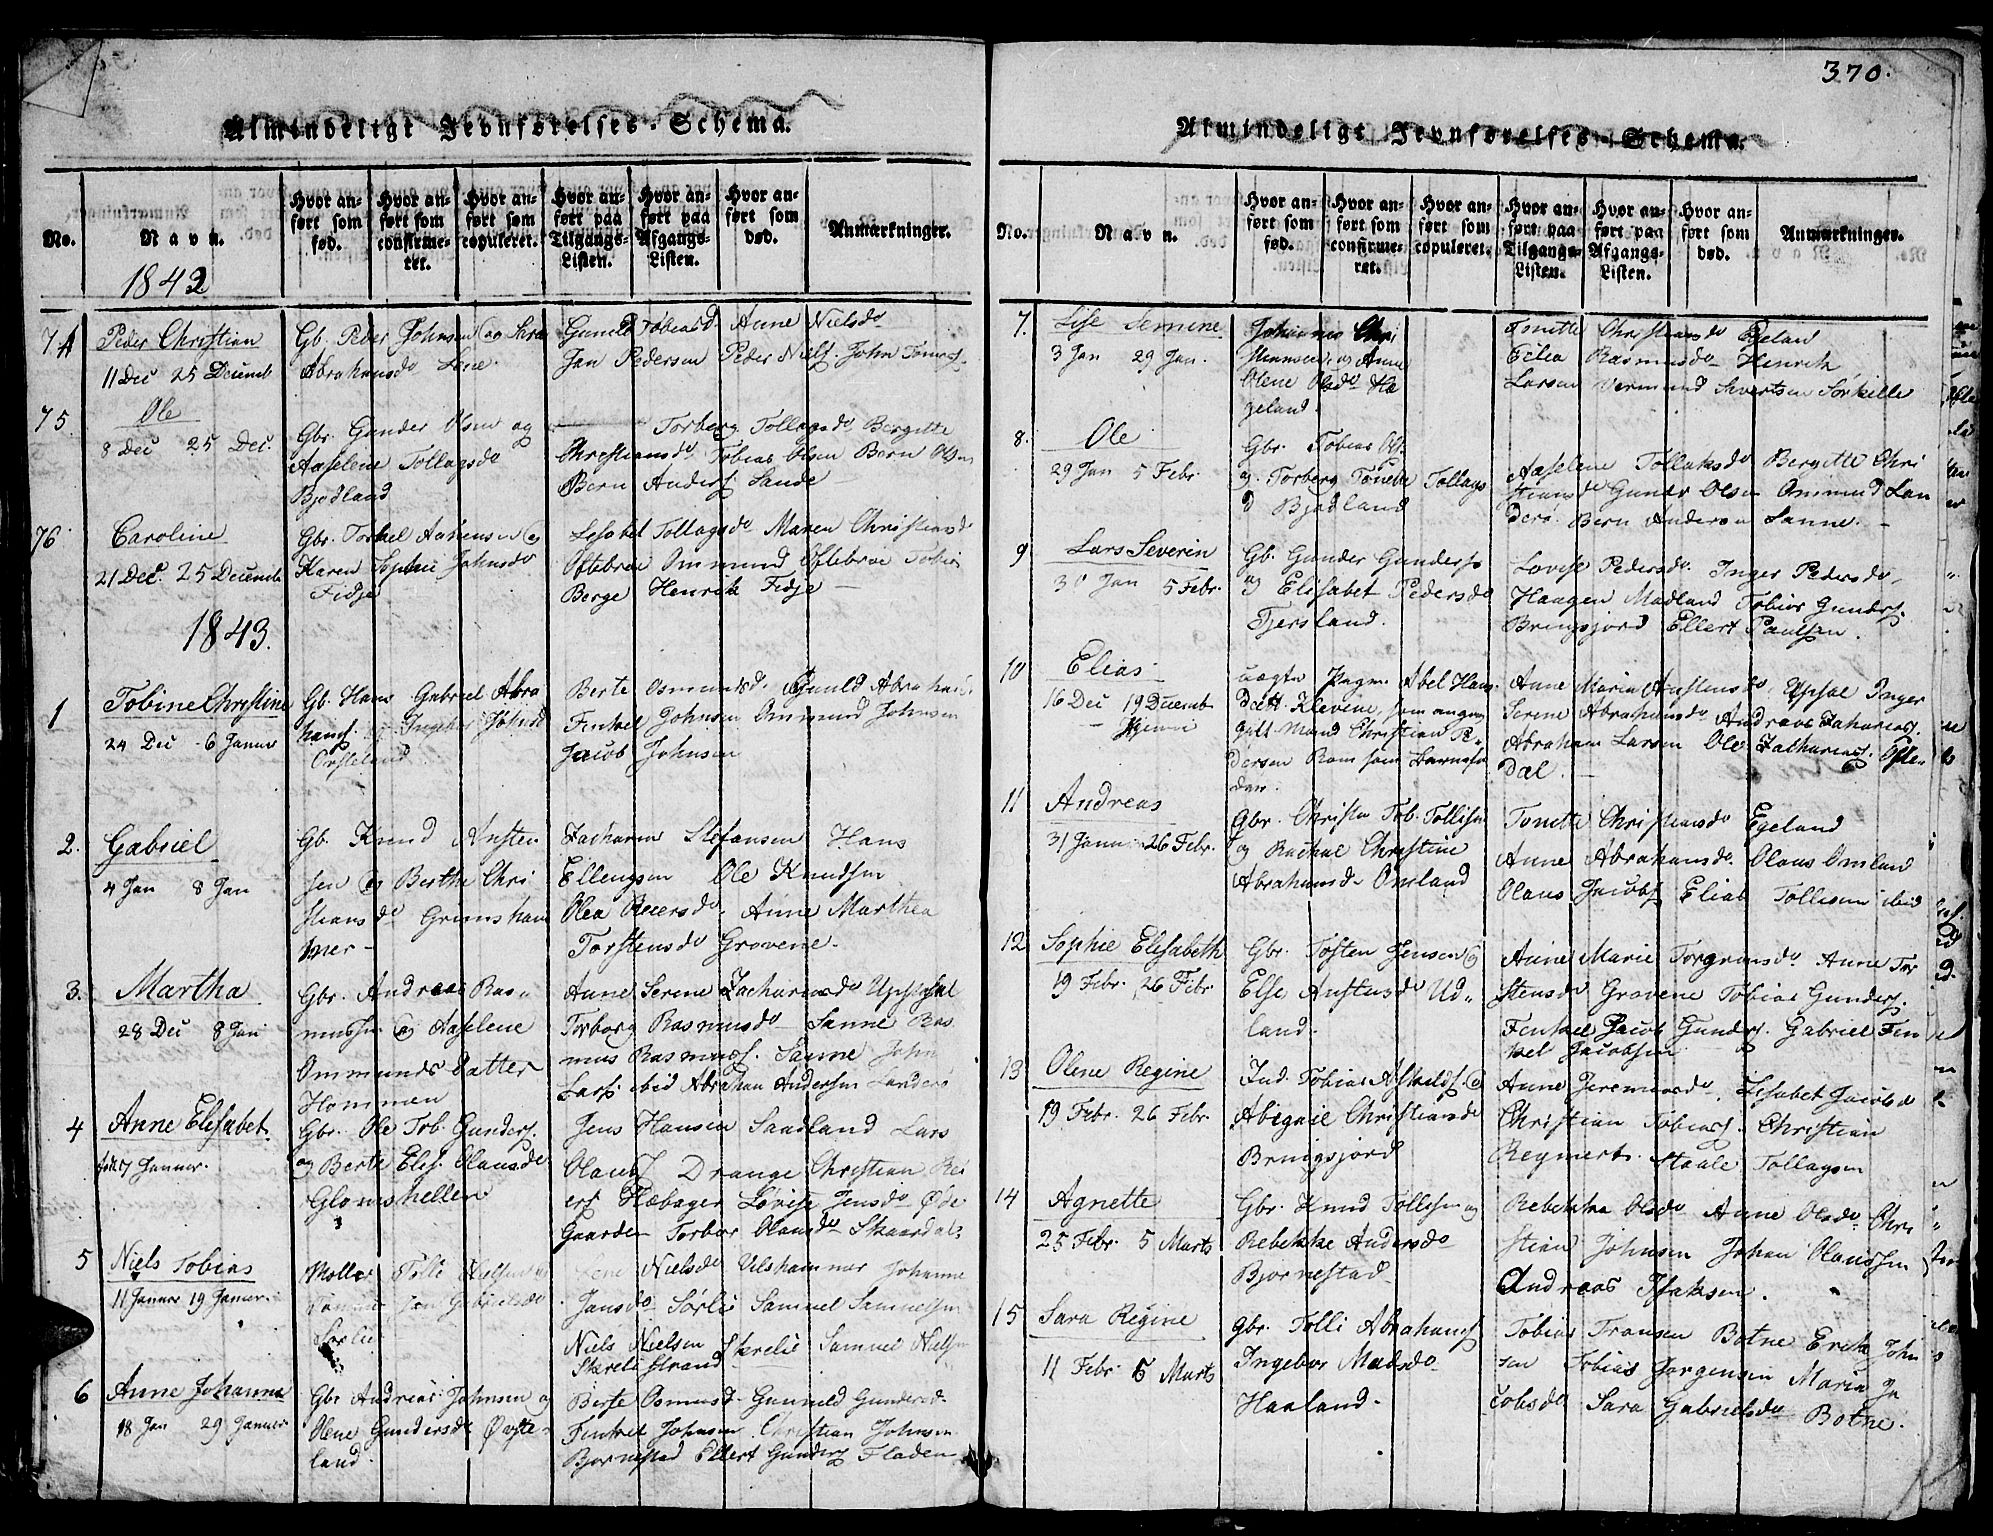 370.
Almindeligt Jevnførelses-Schema.
No.
Navn.
Hvor anført som fød.
Hvor anført som confirmeret.
Hvor anført som copuleret.
Hvor anført paa Tilgangs-Listen.
Hvor anført paa Afgangs-Listen.
Hvor anført som død.
Anmærkninger.
1842
74
Peder Christian
11 Dec 25 Decemb
Gb. Peder Johnsen og
Abrahamsdr Lene
Gunild Tobiasd. Anne Nielsdr
Jan Pedersen Peder Niels. John
75.
Ole
8 Dec 25 Dec.
Gbr. Gunder Olsen og
Aaselene Tollagsdr
Bjodland
Torberg Tollagsdr Bergitte
Christiansdr Tobias Olsen Bern Olsen
Bern Anders. Sande
76
Caroline
21 Dec. 25 Decemb
Gbr. Torkel og
Karen Sophie Johnsdr
Fidje
Lisabet Tollagsdr Maren Christiansd
Oftebroe Ommund Oftebroe Tobias
Berge Henrik Fidje
1843.
1
Tobine Christine
24 Dec 6 Januar
Gb. Hans Gabriel Abra
hams. og Ingebor Johnsd
Berte Osmundsd. Gunild Abrahamsd
Fenkel Johnsen Ommund Johnsen
Jacob Johnsen
2.
Gabriel
4 Jan 8 Jan
Gb. Knud Austen
sen og Berthe Chri
stiansdr Grimsham
mer
Zacharias Stefansen Hans
Ellengsen Ole Knudsen
Olea Reiersdr. Anne Marthea
Torstensdr Grovene.
3.
Martha
28 Dec 8 Jan
Gbr. Andreas Ras
mussen og Aaselene
Ommunds Datter
Hommen
Anne Serene Zachariasdr Upsahl
Torborg Rasmusdr Sanne Ras
mus Rasmuss. Sanne John
Lars. ibid Abrahan Andersen Landerø
4
Anne Elisabet
født 7 Januar.
Gbr. Ole Tob. Gunders.
og Berte Elis. Olausdr
Glomshellen
Jens Hansen Saadland Lars
Olaus. Drange Christian Rei
ers. Hæbager Lovise Jensdr Øde
Gaarden Torbor Olausdr Skaardal
5
Niels Tobias
11 Januar 19 Januar
Tolli Nielsen og
Gabrielsdr
Sørlie
Nielsdr Ulshammer Johanne
Jansdr Sørlie Samuel Samuelsen
Niels Nielsen Skrelie Samuel Nielsen
Skreli Strand
6
Anne Johanna
18 Jan 29 Januar
Gbr Andreas Johnsen og
Olene Gundersdr Øvste
land.
Berte Osmusd. Gunneld Gundersd.
Fenkel Johnsen Christian Johnsen
Bjornestad Ellert Gunders. Fladen
Almindeligt Jevnførelses-Schema.
No.
Navn.
Hvor anført som fød.
Hvor anført som confirmeret.
Hvor anført som copuleret.
Hvor anført paa Tilgangs-Listen.
Hvor anført paa Afgangs-Listen.
Hvor anført som død.
Anmærkninger.
7.
Lise Semine
3 Jan 29 Jan.
Johannes Chri
og Anne
Olene Olsdr Hæ
geland.
Tonette Christiansdr Egeland
Rasmusdr Henrik
Larsen Vermund Sivertsen
8.
Ole
29 Jan 5 Febr
Gbr. Tobias Ols.
og Torberg Tonette Tollags
d Bjodland
Aaselene Tollaksdr Bergitte Chri
stiansdr Gunder Olsen Ommund Lan
derø. Bern Andersen Sanne.
9
Lars Severin
30 Jan 5 Febr.
Gb. Gunder Gunders
og Elisabet Pedersdr
Tjersland.
Lovise Pedersdr. Inger Pedersdr
Haagen Madland Tobias Gunders.
Bringsjord Ellert Paulsen.
10
Elias
16 Dec 19 Decemb
Hjemme
uægte Pigen Abel Hans
Datt. Klevene, som angav
gift Mand Christian Pe
dersen Rom som Barnefa
der.
Anne Maria Austensdr. Upsal Inger
Serene Abrahamsdr Andreas Zacharias.
Abraham Larsen Ole Zacharias. Ofte
dal.
11
Andreas
31 Janu 26 Febr.
Gbr. Christen Tob. Tollisen
og Rachel Christine
Abrahamsdr Omland
Tonette Christiansdr Egeland
Anne Abrahamsdr. Olaus Omland
Olaus Jacobs. Elias Tollisen ibid
12
Sophie Elisabeth
19 Febr. 26 Febr
Gbr. Tosten Jensen og
Else Austensdr Ud
land.
Anne Marie Torgrimsdr. Anne Tor
stensdr Grovene Tobias Gunders.
Fenkel Jacob Gunders. Gabriel Fen
kel Jacobsen
13
Olene Regine
19 Febr. 26 Febr.
Ind. Tobias og
Abigael Christiansdr
Bringsjord
Anne Jeremiasdr. Lisabet Jacobsd
Christian Tobias. Christian
Reynert. Staale Tollagsen
14
Agnette
25 Febr. 5 Marts
Gbr. Knud Tollisen og
Rebekke Andersdr
Bjornestad
Rebekka Olsdr Anne Olsdr. Chri
stian Johnsen Johan Olaussen
Andreas Isaksen.
15
Sara Regine
11 Febr. 5 Marts
Gbr. Tolli Abrahams
Ingebor Madsdr
Haaland.
Tobias Fransen Botne Erik John
sen Tobias Jorgensen Maria Ja
cobsdr Sara Gabrielsdr Botne.